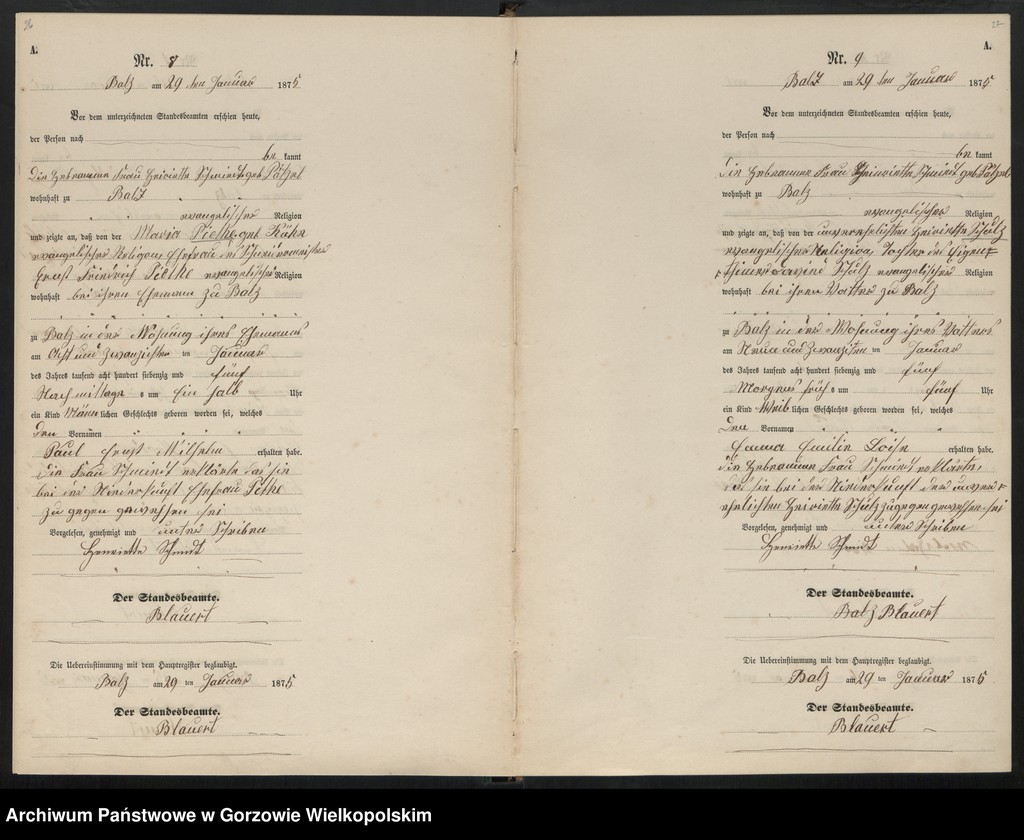 26
A.
Nr. 8
Balz am 29 ten Januar 1875
Vor dem unterzeichneten Standesbeamten erschien heute,
der Person nach
be kannt
Die Hebeamme Frau Heinriette Schmindt geb Pätzel
wohnhaft zu Balz
evangelischer Religion
und zeigte an, daß von der Maria Pielke geb Kähn
evangelischer Religion Ehefrau des
Ernst Friedrich Pielke evangelischer Religion
wohnhaft bei ihren Ehemann zu Balz
zu Balz in der Wohnung ihres Ehemanns
am Acht und Zwanzichsten ten Januar
des Jahres tausend acht hundert siebenzig und fünf
Nachmittags um Ein halb Uhr
ein Kind Männ lichen Geschlechts geboren worden sei, welches
den Vornamen
Paul Ernst Wilhelm erhalten habe.
die Frau Schmindt erklärte das sie
bei der Niederkunft Ehefrau Pelke
zu gegen gewehsen sei
Vorgelesen, genehmigt und unter Schriben
Henriette Schmidt
Der Standesbeamte.
Blauert
Die Uebereinstimmung mit dem Hauptregister beglaubigt.
Balz am 29 ten Januar 1875
Der Standesbeamte.
Blauert
27
A.
Nr. 9
Balz am 29 ten Januar 1875
Vor dem unterzeichneten Standesbeamten erschien heute,
der Person nach
be kannt
die Hebeamme Frau Heinriette Schmindt geb Pätzel
wohnhaft zu Balz
evangelischer Religion
und zeigte an, daß von der unverehelichten Heinriette Schulz
evangelischer Religion, Tochter des Eigen=
thümers Schulz evangelischer Religion
wohnhaft bei ihren Vatter zu Balz
zu Balz in der Wohnung ihres Vatters
am Neun und Zwanzigten ten Januar
des Jahres tausend acht hundert siebenzig und fünf
Morgens früh um fünf Uhr
ein Kind Weib lichen Geschlechts geboren worden sei, welches
den Vornamen
Emma Emilie Loise erhalten habe.
die Hebeamme Frau Schmindt erklärte,
das sie bei der Niederkunft der unver=
ehelichten Heinriette Schulz zugegen gewehsen sei
Vorgelesen, genehmigt und unter Schriben
Henriette Schmidt
Der Standesbeamte.
Balz Blauert
Die Uebereinstimmung mit dem Hauptregister beglaubigt.
Balz am 29 ten Januar 1875
Der Standesbeamte.
Blauert
Archiwum Państwowe w Gorzowie Wielkopolskim